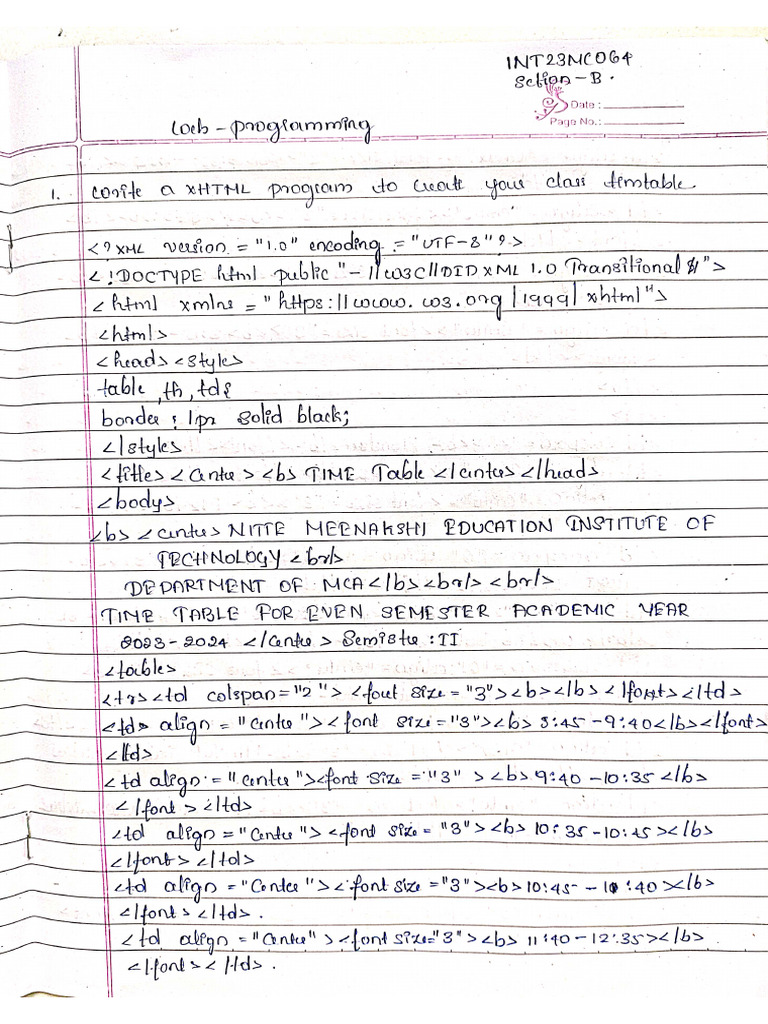 1NT23MC064
Section-B.
Date :
Page No.:
Web-programming
1. Write a XHTML program to Create your class timtable.
<?XML version = "1.0" encoding = "UTF-8"?>
<!DOCTYPE html public "-//W3C//DTD XML 1.0 Transitional //">
<html xmlns = "https://www.w3.org/1999/xhtml">
<html>
<head><style>
table, th, td{
border : 1px solid black;
</style>
<title><Center><b> TIME Table </center></head>
<body>
<b> <center> NITTE MEENAKSHI EDUCATION INSTITUTE OF
TECHNOLOGY <br/>
DEPARTMENT OF MCA</b><br/> <br/>
TIME TABLE FOR EVEN SEMESTER ACADEMIC YEAR
2023-2024 </Center> Semister : II
<table>
<tr><td colspan="2"> <font size = "3"><b></b></font></td>
<td> align = "Center"><font size = "3"><b> 8:45 - 9:40</b></font>
</td>
<td align = "center"><font size = "3" ><b> 9:40 - 10:35 </b>
</font> </td>
<td align = "Center"> <font size = "3"><b> 10:35-10:45></b>
</font> </td>
<td align = "Center"><font size = "3"><b> 10:45 - 10:40 ></b>
</font> </td>.
<td align = "Center"><font size="3"><b> 11:40-12:35></b>
</font> </td>.